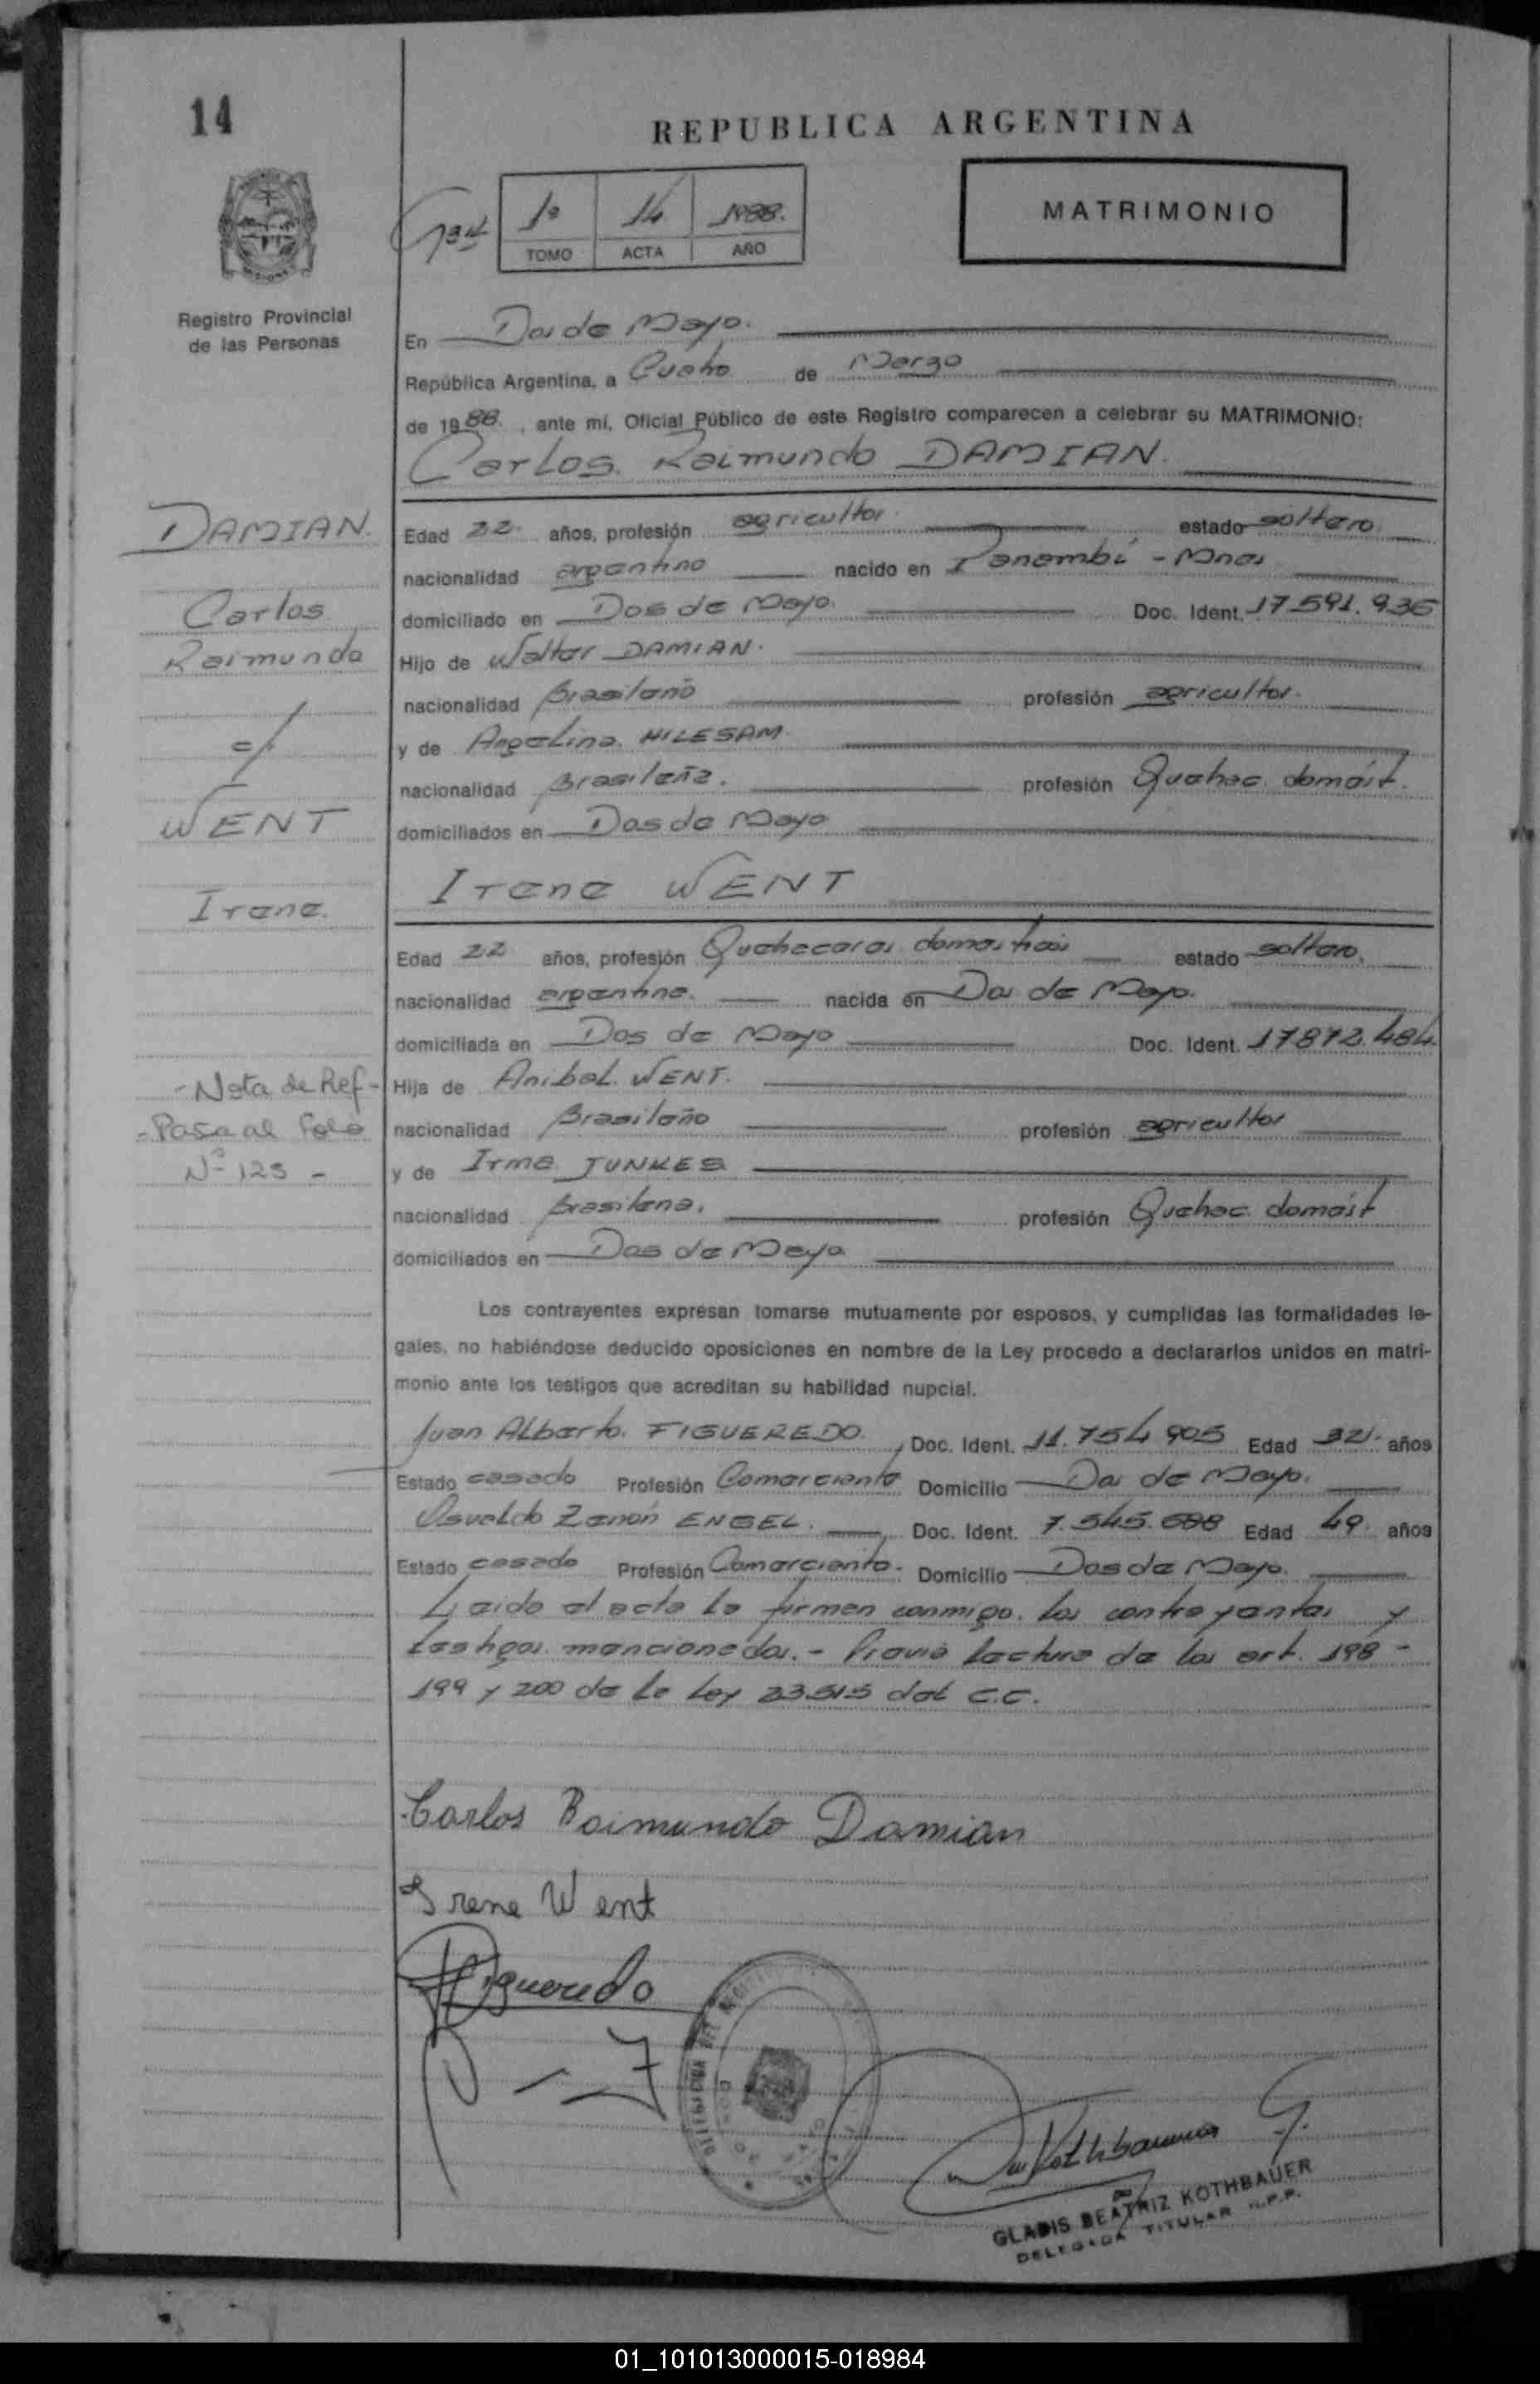 14
REPUBLICA ARGENTINA
1º 14 1988.
TOMO ACTA AÑO
MATRIMONIO
Registro Provincial
de las Personas
En Dos de Mayo.
República Argentina, a Cuatro de Marzo
de 1988. , ante mí, Oficial Público de este Registro comparecen a celebrar su MATRIMONIO:
Carlos Raimundo DAMIAN.
DAMIAN.
Carlos
Raimundo
c/
WENT
Irene.
Edad 22 años, profesión agricultor estado soltero
nacionalidad argentino nacido en Panambí - Mnes
domiciliado en Dos de Mayo. Doc. Ident. 17.591.936
Hijo de Walter DAMIAN.
nacionalidad Brasileño profesión agricultor.
y de Angelina HILESAM.
nacionalidad Brasileña. profesión Quehac. domést.
domiciliados en Dos de Mayo
Irene WENT
Edad 22 años, profesión Quehaceres domesticos estado soltera.
nacionalidad argentina. nacida en Dos de Mayo.
domiciliada en Dos de Mayo Doc. Ident. 17872.484.
- Nota de Ref -
- Pasa al Folio
Nº 123 -
Hija de Anibal WENT.
nacionalidad Brasileño profesión agricultor
y de Irma JUNKES
nacionalidad Brasilena. profesión Quehac. domést
domiciliados en Dos de Mayo
Los contrayentes expresan tomarse mutuamente por esposos, y cumplidas las formalidades le-
gales, no habiéndose deducido oposiciones en nombre de la Ley procedo a declararlos unidos en matri-
monio ante los testigos que acreditan su habilidad nupcial.
Juan Alberto. FIGUEREDO. , Doc. Ident. 11.754.905 Edad 32. años
Estado casado Profesión Comerciante Domicilio Dos de Mayo.
Osvaldo Zenón ENGEL. , Doc. Ident. 7.545.688 Edad 49. años
Estado casado Profesión Comerciante. Domicilio Dos de Mayo.
Leida el acta la firman conmigo. los contrayentes y
testigos mencionados. - Previa lectura de los art. 198 -
199 y 200 de la Ley 23.515 del C.C.
Carlos Raimundo Damian
Irene Went
Figueredo
Kothbauer G.
GLADIS BEATRIZ KOTHBAUER
DELEGADA TITULAR R.P.P.
01_101013000015-018984